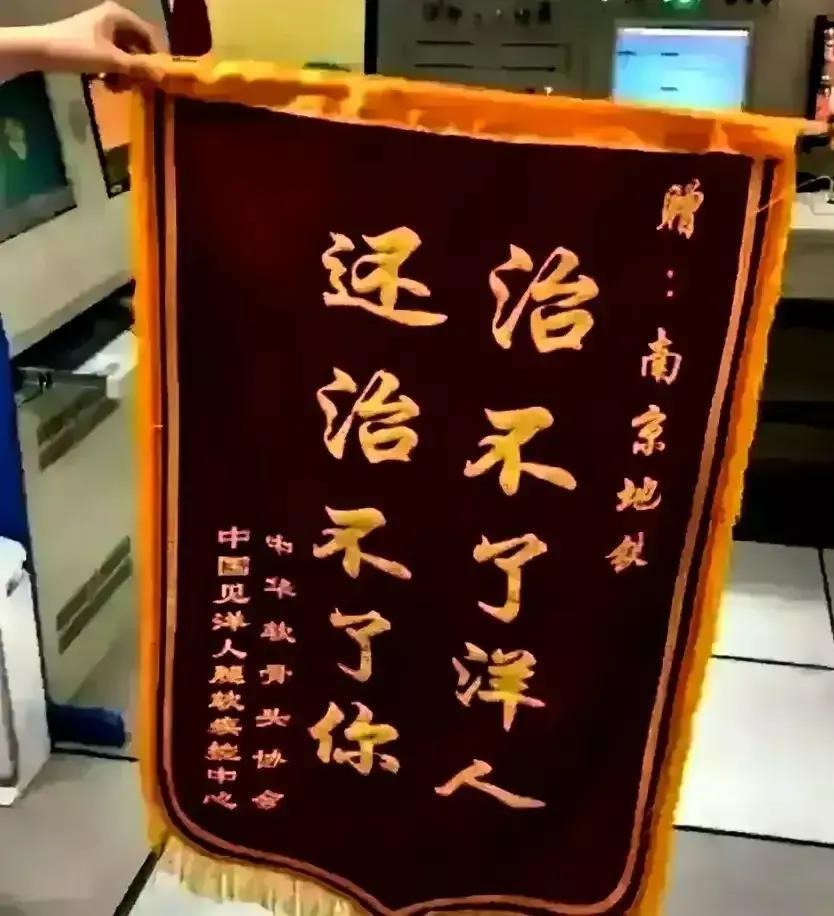 赠:南京地铁
治不了洋人
还治不了你
中华软骨头协会
中国见洋人腿软疾控中心